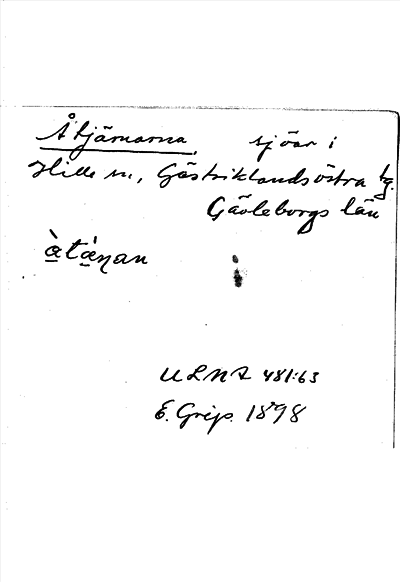 Åtjärnarna, sjöar i
Hille sn, Gästriklands östra tg.
Gävleborgs län
à̱tá̱ŋan
ULMA 481:63
E. Grip. 1898